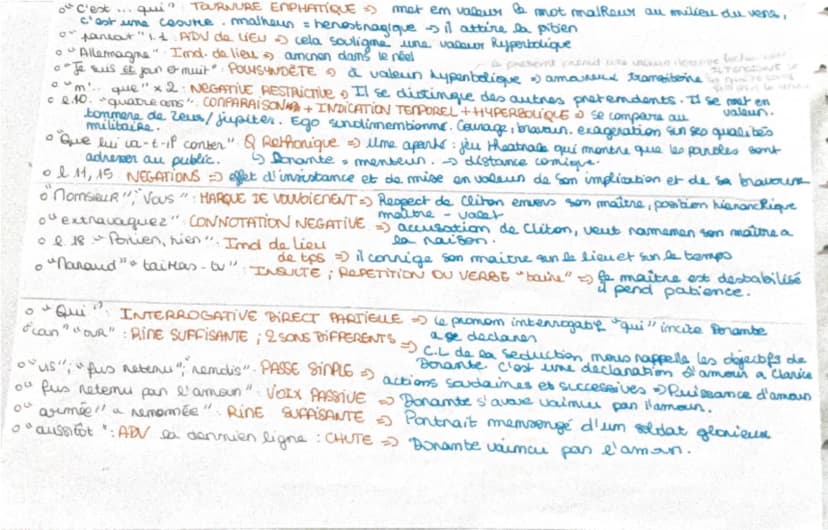 o "C'est ... qui" : TOURNURE EMPHATIQUE => met em valeur le mot malheur au milieu du vers,
c'est une cesure. malheur = hemostragique -> il attire la pitier
o "partout" l.1 ADV de LIEU => cela souligne une valeur hyperbolique
o "Allemagne" Ind. de lieu => amener dans le réel
o "Je suis et jour et nuit" POLYSYNDÈTE => à valeur hyperbolique => amoureux
o "m'.. que" x2 : NEGATIVE RESTRICTIVE => Il se distingue des autres pretendents. Il se met en
valeur.
o l.10. "quatre ans". COMPARAISON + INDICATION TEMPOREL + HYPERBOLIQUE => se compare au
tonnerre de Zeus/jupiter. Ego surdimentionné. Courage, bravoure. exageration sur ses qualités
militaire.
o "Que lui va-t-il conter" Q Rethorique => Une aparté : jeu theatrale qui montre que les paroles sont
adresser au public. ↳ Dorante = menteur. -> distance comique.
o l.11, 15 NEGATIONS => effet d'insistance et de mise en valeur de son implication et de sa bravoure
o "Monsieur", "Vous" : MARQUE DE VOUVOIEMENT => Respect de Cliton envers son maître, position hierarchique
maître - valet
o "extravaguez" CONNOTATION NEGATIVE => accusation de Cliton, veut ramener son maître a
la raison.
o l.18 "hier". Ind de lieu
de tps => il corrige son maitre sur le lieu et sur le temps
o "Maraud" "tairas-tu" : INSULTE ; REPETITION DU VERBE "taire" => Le maître est destabilisé
il perd patience.
o "Qui" : INTERROGATIVE DIRECT PARTIELLE => Le pronom interrogatif "qui" incite Dorante
a se declarer
"our" : RIME SUFFISANTE ; 2 SONS DIFFERENTS => C.L de la Seduction nous rappelle les objectifs de
Dorante. C'est une declaration d'amour a Clarice
o "fus retenu", "rendis". PASSE SIMPLE => actions soudaines et successives => Puissance d'amour
o "fus retenu par l'amour" VOIX PASSIVE => Dorante s'avoue vaincu par l'amour.
o "armée" "renommée". RIME SUFFISANTE => Portrait mensongé d'un soldat glorieux
o "aussitôt" : ADV la dernier ligne : CHUTE => Dorante vaincu par l'amour.